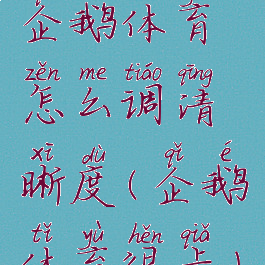 企鹅体育
zěn me tiáo qīng
怎么调清
xī dù ( qǐ é
晰度(企鹅
tǐ yù hěn qiǎ
体育很